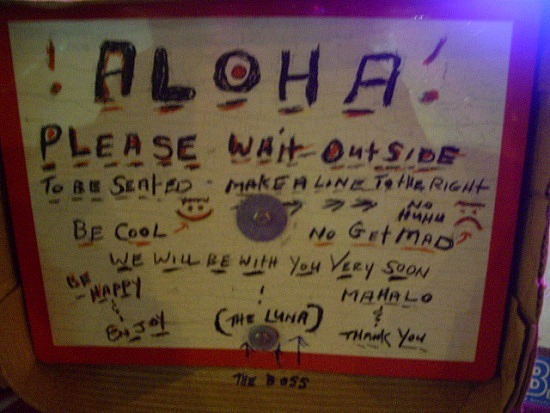 ! ALOHA !
PLEASE WAit OutSIDE
TO BE SEATED - MAKE A LINE TO the RIGHT
BE COOL
NO HUHU
NO GEt MAD
WE WILL BE WITH YOU VERY SOON
BE HAPPY
ENJOY
! (THE LUNA)
MAHALO
&
THANK YOU
THE BOSS
B